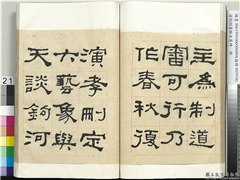 主為制道
審可行乃
作春秋復
演孝刪定
六藝象與
天談鉤河
21